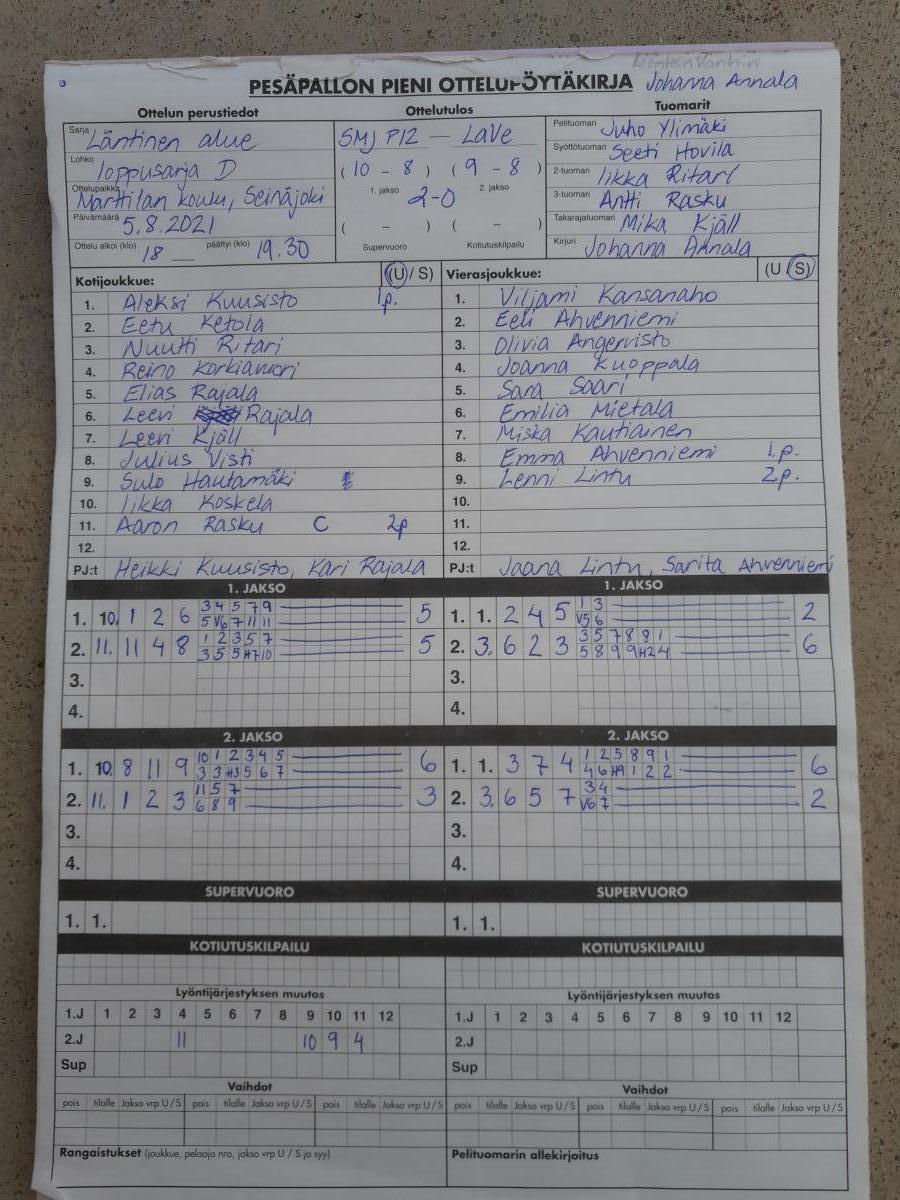 PESÄPALLON PIENI OTTELUPÖYTÄKIRJA Johanna Annala
Ottelun perustiedot Ottelutulos Tuomarit
Sarja Läntinen alue
Lohko loppusarja D
Ottelupaikka Marttilan koulu, Seinäjoki
Päivämäärä 5.8.2021
Ottelu alkoi (klo) 18 päättyi (klo) 19.30
SMJ P12 — LaVe
(10 - 8) (9 - 8)
1. jakso 2-0 2. jakso
( - ) ( - )
Supervuoro Kotiutuskilpailu
Pelituomari Juho Ylimäki
Syöttötuomari Seeti Hovila
2-tuomari Iikka Ritari
3-tuomari Antti Rasku
Takarajatuomari Mika Kjäll
Kirjuri Johanna Annala
Kotijoukkue: (U / S)
1. Aleksi Kuusisto 1p.
2. Eetu Ketola
3. Nuutti Ritari
4. Reino Korkiamäri
5. Elias Rajala
6. Leevi Rajala
7. Leevi Kjäll
8. Julius Visti
9. Sulo Hautamäki
10. Iikka Koskela
11. Aaron Rasku C 2p
12.
PJ:t Heikki Kuusisto, Kari Rajala
Vierasjoukkue: (U / S)
1. Viljami Kansanaho
2. Eeli Ahvenniemi
3. Olivia Angervisto
4. Joanna Kuoppala
5. Sara Saari
6. Emilia Mietala
7. Miska Kautiainen
8. Emma Ahvenniemi 1.p.
9. Lenni Lintu 2p.
10.
11.
12.
PJ:t Jaana Lintu, Sarita Ahvenniemi
1. JAKSO
1. 10. 1 2 6 3 4 5 7 9 5
5 V6 7 11 11
2. 11. 11 4 8 1 2 3 5 7 5
3 5 5 H7 10
3.
4.
1. JAKSO
1. 1. 2 4 5 1 3 2
V5 6
2. 3. 6 2 3 3 5 7 8 9 1 6
5 8 9 9 H2 4
3.
4.
2. JAKSO
1. 10. 8 11 9 10 1 2 3 4 5 6
3 3 H3 5 6 7
2. 11. 1 2 3 11 5 7 3
6 8 9
3.
4.
2. JAKSO
1. 1. 3 7 4 1 2 5 8 9 1 6
4 6 H9 1 2 2
2. 3. 6 5 7 3 4 2
V6 7
3.
4.
SUPERVUORO SUPERVUORO
1. 1. 1. 1.
KOTIUTUSKILPAILU KOTIUTUSKILPAILU
Lyöntijärjestyksen muutos Lyöntijärjestyksen muutos
1.J 1 2 3 4 5 6 7 8 9 10 11 12 1.J 1 2 3 4 5 6 7 8 9 10 11 12
2.J 11 10 9 4 2.J
Sup Sup
Vaihdot Vaihdot
pois tilalle Jakso vrp U/S pois tilalle Jakso vrp U/S pois tilalle Jakso vrp U/S pois tilalle Jakso vrp U/S pois tilalle Jakso vrp U/S pois tilalle Jakso vrp U/S
Rangaistukset (joukkue, pelaaja nro, jakso vrp U / S ja syy) Pelituomarin allekirjoitus